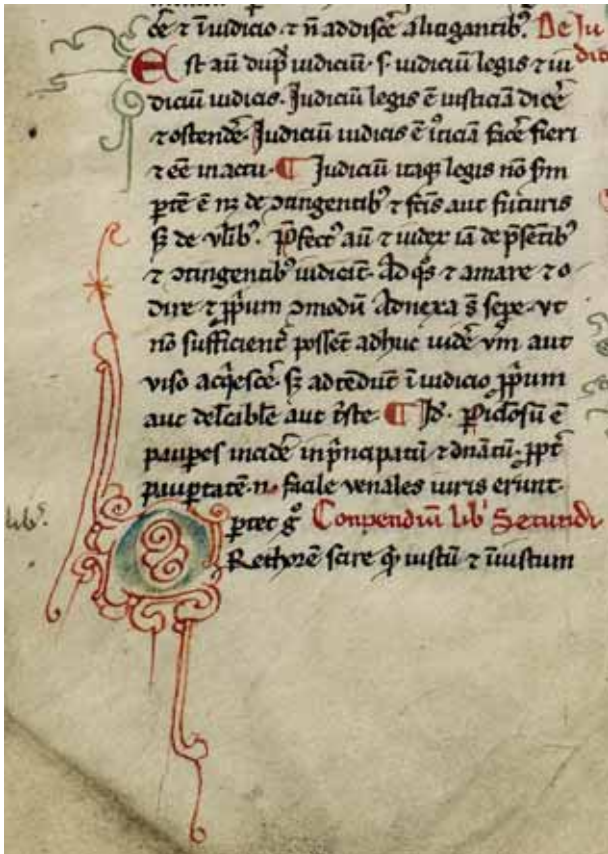 cẽ ⁊ ĩ iudicio ⁊ ñ addiscẽ aligantibꝰ. De Iu
Est aũ dup̃ iudiciũ .s. iudiciũ legis ⁊ iu dic̃
diciũ iudicis. Judiciũ legis ẽ iusticiã dicẽ
⁊ ostendẽ. Judiciũ iudicis ẽ iticiã facẽ fieri
⁊ eẽ in actu. ¶ Judiciũ itaq legis nõ sm̃
ꝑtẽ ẽ nͨ de ꝯtingentibꝰ ⁊ fc̃is aut futuris
sꝫ de vl̃ibꝰ. P̃fectꝰ aũ ⁊ iudex iã de p̃sẽtibꝰ
⁊ ꝯtingentibꝰ iudicãt. Ad q̃s ⁊ amare ⁊ o
dire ⁊ ꝓp̃um ꝯmodũ Adnexa s̃ sepe. vt
nõ sufficient̾ possẽt adhuc uidẽ vm̃ aut
viso acq̃escẽ. sꝫ adtẽdũt ĩ iudicio ꝓp̃um
aut delc̃abile aut t̾ste. ¶ Jd̾. ꝑiclosũ ẽ
pauꝑes incidẽ in p̾ncipatũ ⁊ dñatũ. ꝓpt̾
pauꝑtatẽ .n. facile venales iuris erunt.
libꝰ.
Oꝑtet gͦ Conpendiũ libͥ Secundi
Rethorẽ scire q̾ iustũ ⁊ ĩiustum